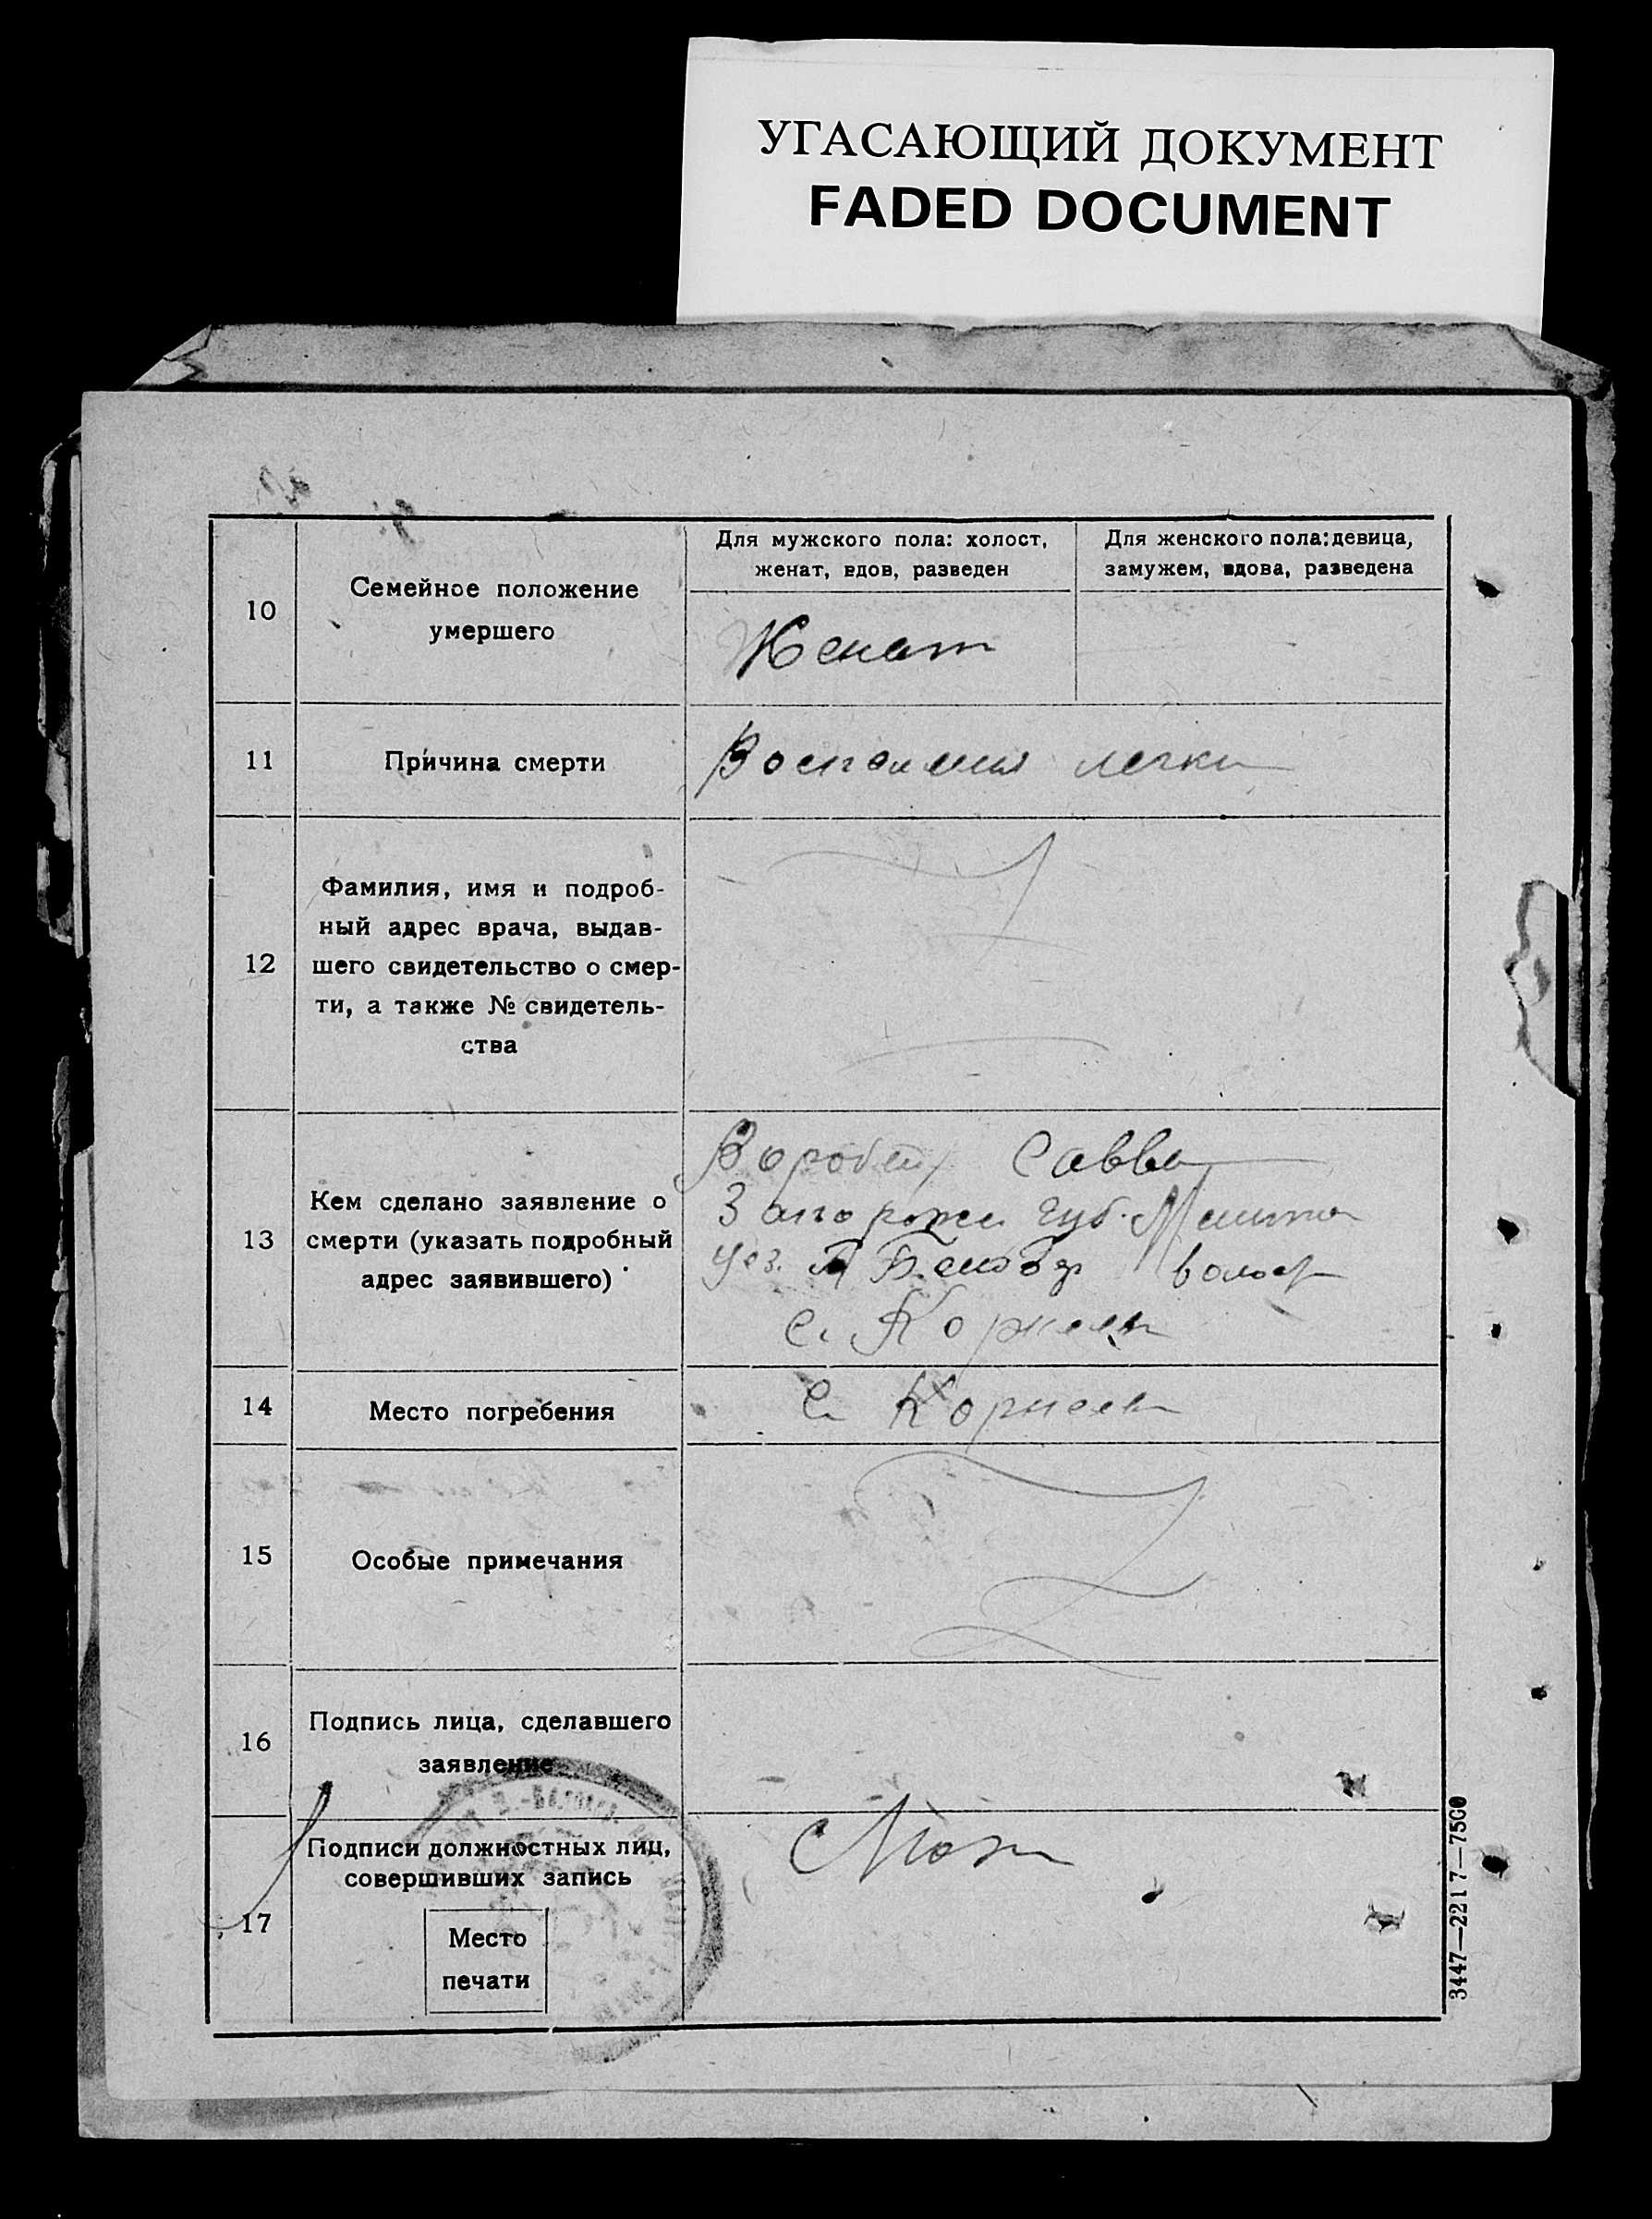 УГАСАЮЩИЙ ДОКУМЕНТ
FADED DOCUMENT
10
Семейное положение
умершего
Для мужского пола: холост,
женат, вдов, разведен
Для женского пола: девица,
замужем, вдова, разведена
Женат
11
Причина смерти
Воспаления легки
12
Фамилия, имя и подроб-
ный адрес врача, выдав-
шего свидетельство о смер-
ти, а также № свидетель-
ства
13
Кем сделано заявление о
смерти (указать подробный
адрес заявившего)
Воробей Савва
Запорожс губ.
уез. волост
с. Корнеев
14
Место погребения
с. Корнеев
15
Особые примечания
16
Подпись лица, сделавшего
заявление
17
Подписи должностных лиц,
совершивших запись
Место
печати
3447—2217—7500